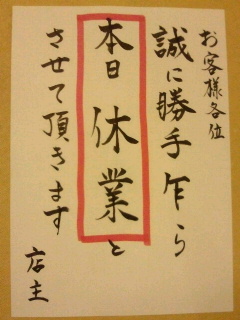 お客様各位
誠に勝手乍ら
本日休業と
させて頂きます
店主